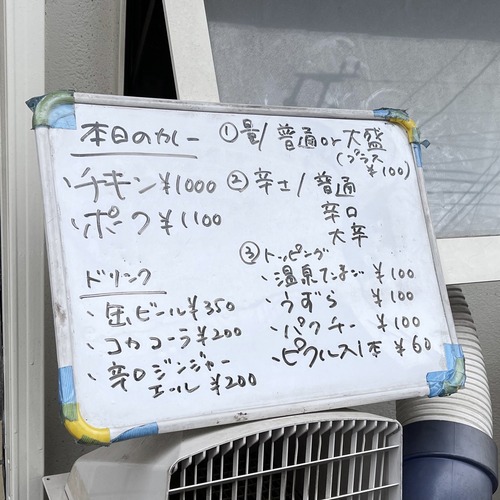 本日のカレー
・チキン ¥1000
・ポーク ¥1100
ドリンク
・缶ビール ¥350
・コカコーラ ¥200
・辛口ジンジャー
エール ¥200
①量/普通or大盛
(プラス
¥100)
②辛さ/普通
辛口
大辛
③トッピング
・温泉たまご ¥100
・うずら ¥100
・パクチー ¥100
・ピクルス1本 ¥60